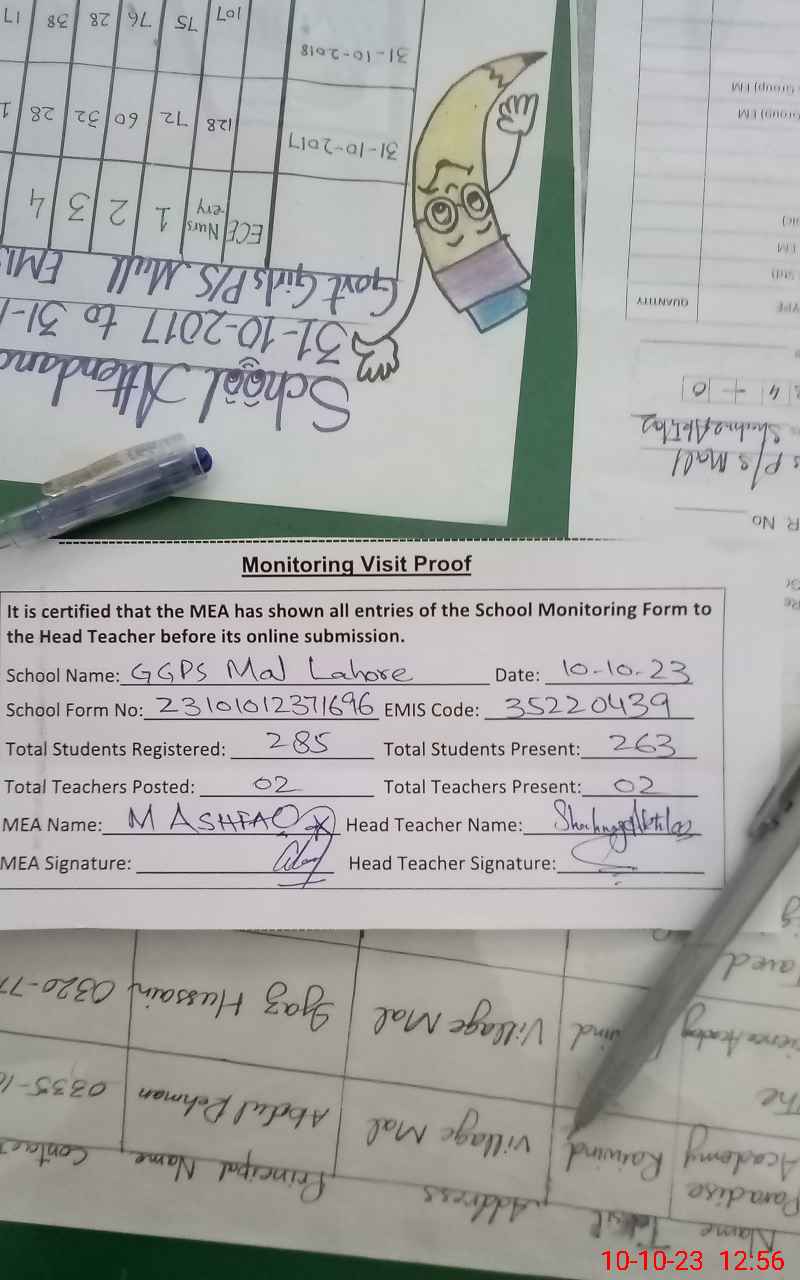 107 75 76 28 38 17
31-10-2018
128 72 60 32 28 1
31-10-2017
ECE Nursery 1 2 3 4
Govt Girls P/S Mall EMIS
31-10-2017 to 31-1
School Attendanc
Group) EM
Group) EM
EM
Std)
YPE QUANTITY
4 + 0
P/S Mall
R No
Monitoring Visit Proof
It is certified that the MEA has shown all entries of the School Monitoring Form to
the Head Teacher before its online submission.
School Name: GGPS Mal Lahore Date: 10-10-23
School Form No: 23101012371696 EMIS Code: 35220439
Total Students Registered: 285 Total Students Present: 263
Total Teachers Posted: 02 Total Teachers Present: 02
MEA Name: M ASHFAQ Head Teacher Name:
MEA Signature: Head Teacher Signature:
aved
ience Academy wind Village Mal Ijaz Hussain 0320-77
The
Paradise Academy Raiwind Village Mal Abdul Rehman 0335-10
Name Tehsil Address Principal Name Contac
10-10-23 12:56